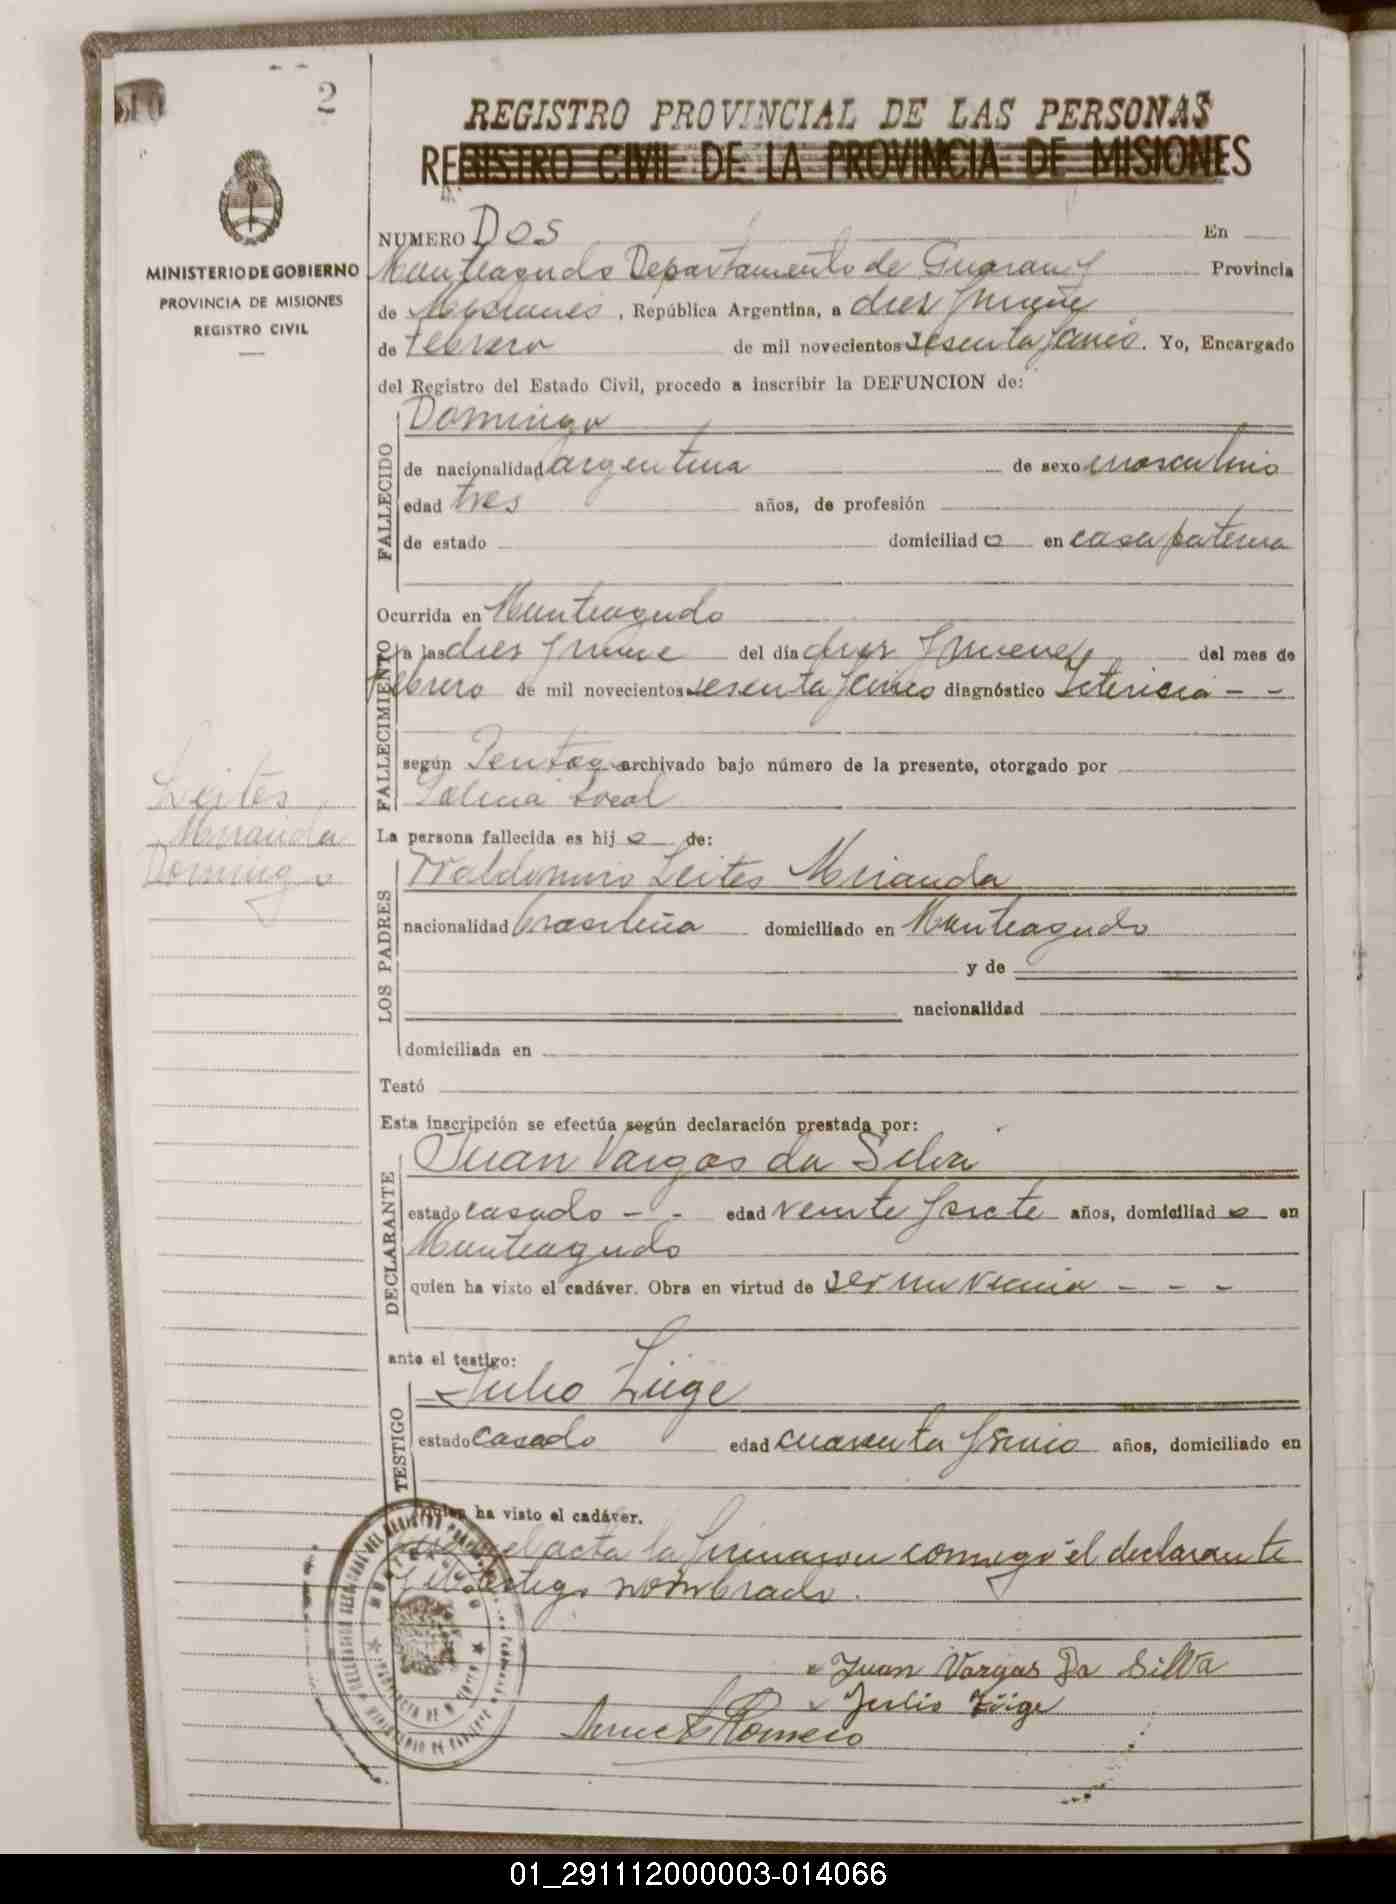 2
REGISTRO PROVINCIAL DE LAS PERSONAS
REGISTRO CIVIL DE LA PROVINCIA DE MISIONES
MINISTERIO DE GOBIERNO
PROVINCIA DE MISIONES
REGISTRO CIVIL
NUMERO Dos En
Monteagudo Departamento de Guarany Provincia
de Misiones, República Argentina, a diez y nueve
de Febrero de mil novecientos sesenta y cinco. Yo, Encargado
del Registro del Estado Civil, procedo a inscribir la DEFUNCION de:
FALLECIDO
Domingo
de nacionalidad argentina de sexo masculino
edad tres años, de profesión
de estado domiciliado en casa paterna
Ocurrida en Monteagudo
FALLECIMIENTO
a las diez y nueve del día diez y nueve del mes de
Febrero de mil novecientos sesenta y cinco diagnóstico Ictericia - -
según archivado bajo número de la presente, otorgado por
local
Leites
Miranda
Domingo
La persona fallecida es hijo de:
LOS PADRES
Waldomiro Leites Miranda
nacionalidad brasileña domiciliado en Monteagudo
y de
nacionalidad
domiciliada en
Testó
Esta inscripción se efectúa según declaración prestada por:
DECLARANTE
Juan Vargas da Silva
estado casado - - edad veinte y siete años, domiciliado en
Monteagudo
quien ha visto el cadáver. Obra en virtud de ser un vecino - - -
ante el testigo:
TESTIGO
Julio Züge
estado casado edad cuarenta y años, domiciliado en
quien ha visto el cadáver.
el acta la firmaron conmigo el declarante
y el testigo nombrado.
Juan Vargas Da Silva
Julio Züge
Romero
01_291112000003-014066